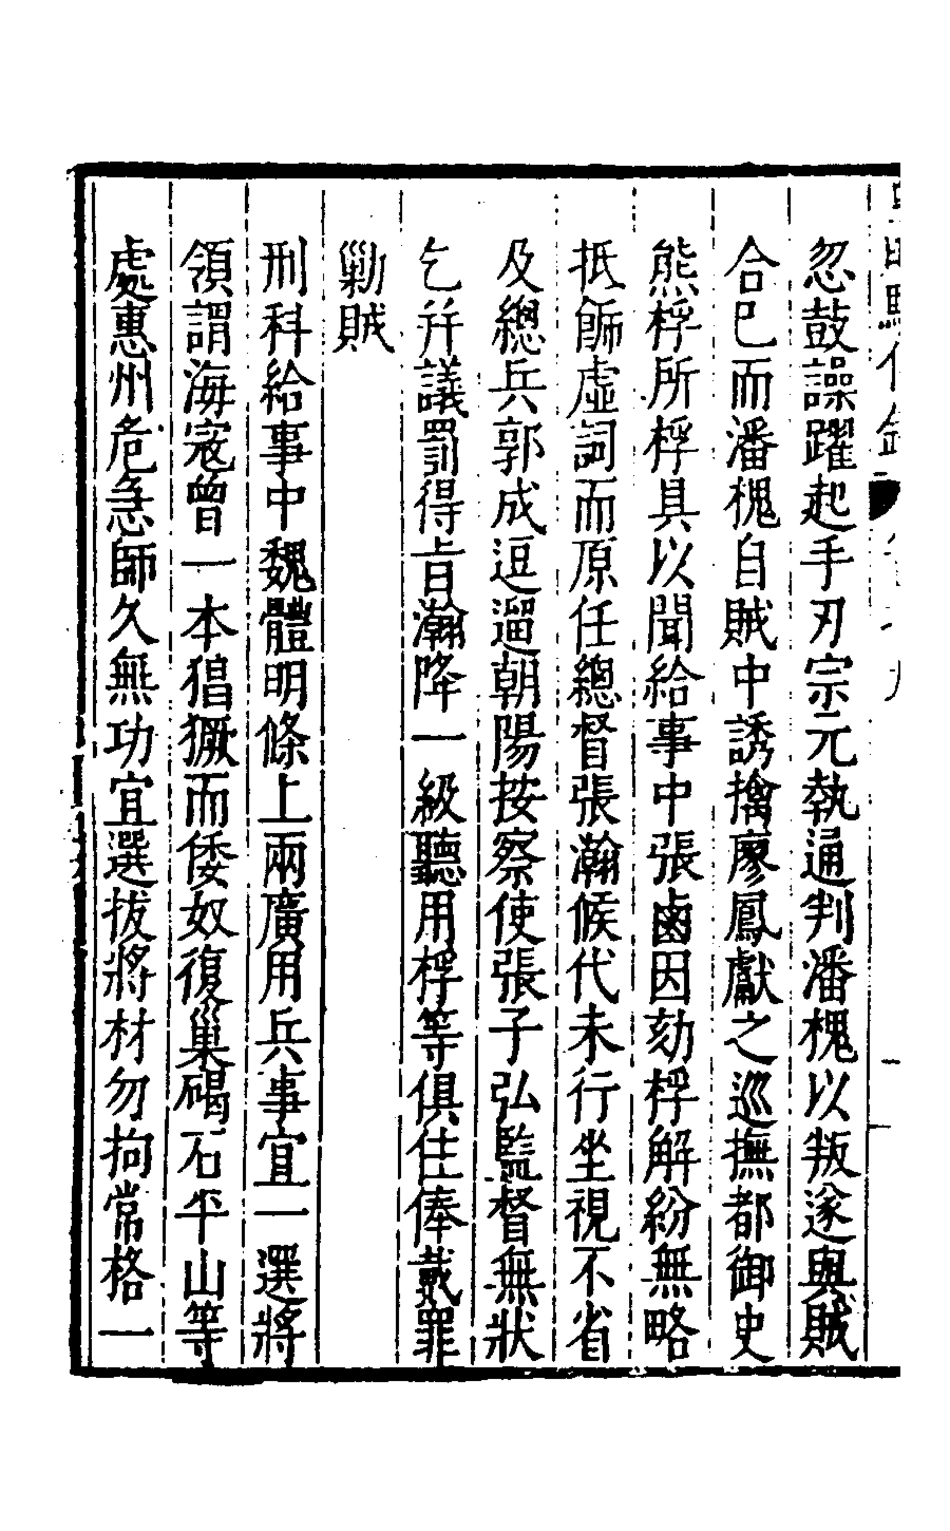 忽鼓譟躍起手刃宗元執通判潘槐以叛遂與賊
合巳而潘槐自賊中誘擒廖鳳獻之巡撫都御史
熊桴所桴具以聞給事中張鹵因劾桴解紛無略
抵飾虛詞而原任總督張瀚候代未行坐視不省
及總兵郭成逗遛朝陽按察使張子弘監督無狀
乞并議罰得旨瀚降一級聽用桴等俱住俸戴罪
勦賊
刑科給事中魏體明條上兩廣用兵事宜一選將
領謂海寇曾一本猖獗而倭奴復巢碣石平山等
處惠州危急師久無功宜選拔將材勿拘常格一